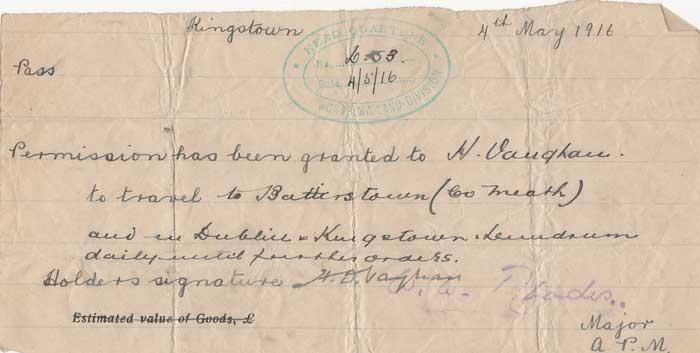 Kingstown 4th May 1916
HEAD QUARTERS
No. L. 53.
Date 4/5/16
NORTH MIDLAND DIVISION
Pass
Permission has been granted to H. Vaughan.
to travel to Batterstown (Co Meath)
and in Dublin & Kingstown & Dundrum
daily until further orders.
Holders signature H. D. Vaughan
W. Rhodes..
Estimated value of Goods, £
Major
A. P. M.